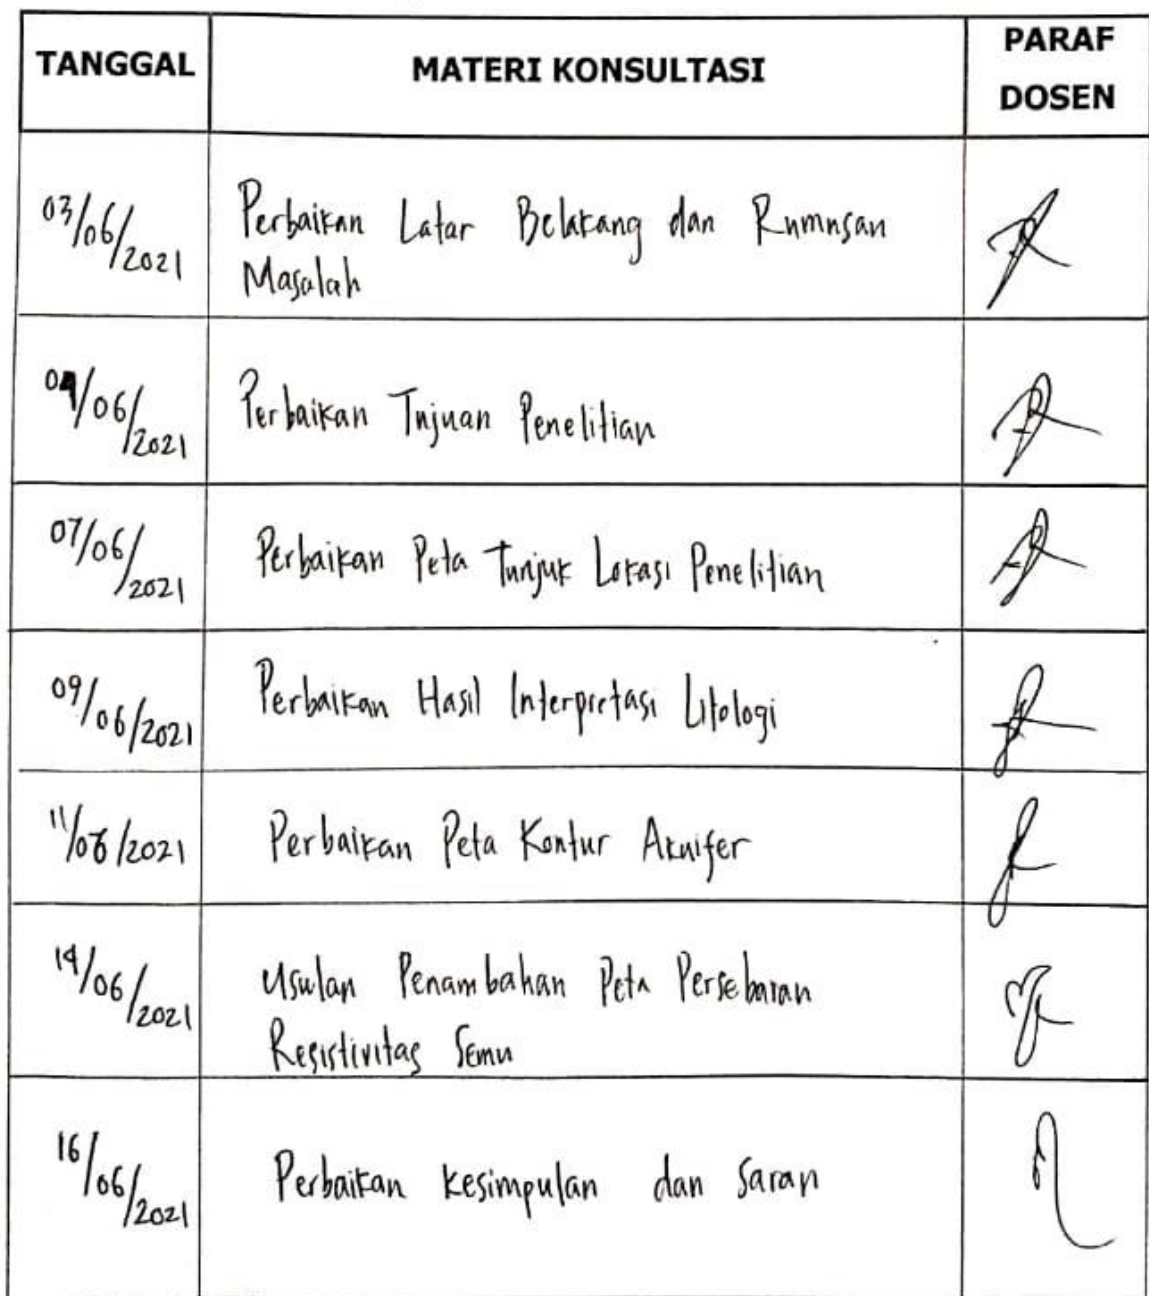 TANGGAL MATERI KONSULTASI PARAF
DOSEN
03/06/2021 Perbaikan Latar Belakang dan Rumusan
Masalah
04/06/2021 Perbaikan Tujuan Penelitian
07/06/2021 Perbaikan Peta Tunjuk Lokasi Penelitian
09/06/2021 Perbaikan Hasil Interpretasi Litologi
11/06/2021 Perbaikan Peta Kontur Akuifer
14/06/2021 Usulan Penambahan Peta Persebaran
Resistivitas Semu
16/06/2021 Perbaikan Kesimpulan dan Saran